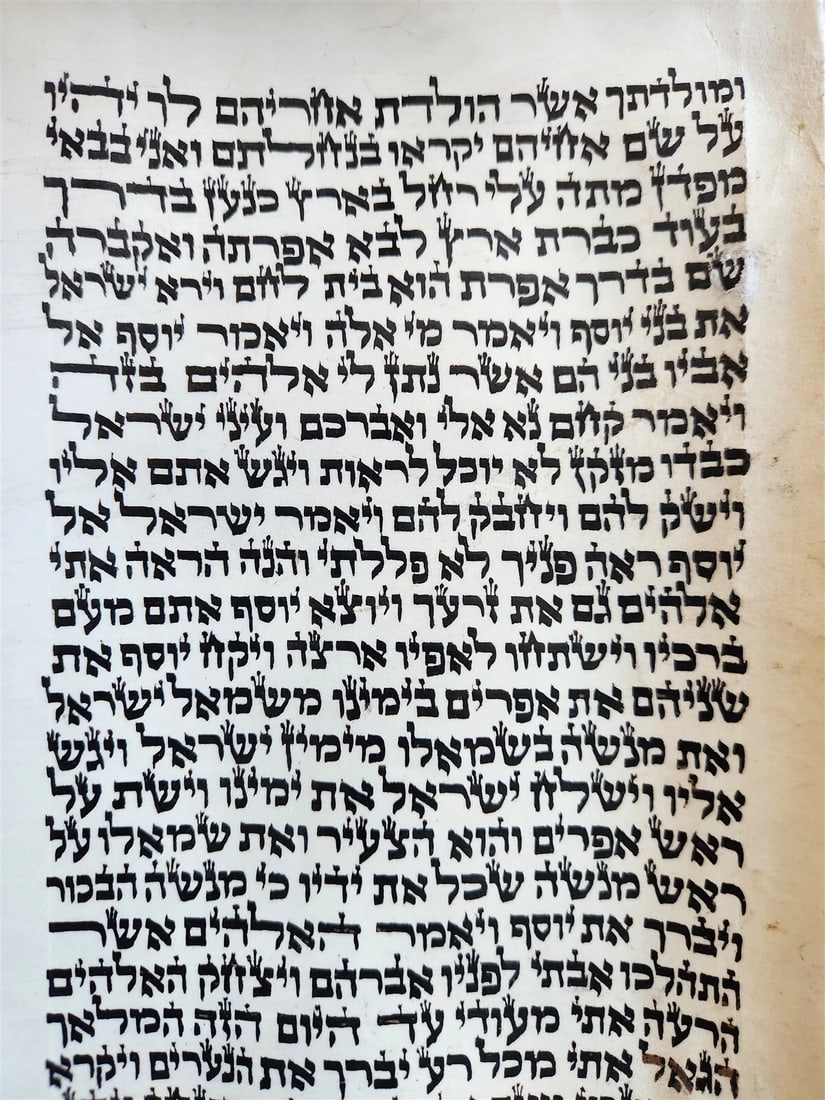 ומולדתך אשר הולדת אחריהם לך יהיו
על שם אחיהם יקראו בנחלתם ואני בבאי
מפדן מתה עלי רחל בארץ כנען בדרך
בעוד כברת ארץ לבא אפרתה ואקברה
שם בדרך אפרת הוא בית לחם וירא ישראל
את בני יוסף ויאמר מי אלה ויאמר יוסף אל
אביו בני הם אשר נתן לי אלהים בזה
ויאמר קחם נא אלי ואברכם ועיני ישראל
כבדו מזקן לא יוכל לראות ויגש אתם אליו
וישק להם ויחבק להם ויאמר ישראל אל
יוסף ראה פניך לא פללתי והנה הראה אתי
אלהים גם את זרעך ויוצא יוסף אתם מעם
ברכיו וישתחו לאפיו ארצה ויקח יוסף את
שניהם את אפרים בימינו משמאל ישראל
ואת מנשה בשמאלו מימין ישראל ויגש
אליו וישלח ישראל את ימינו וישת על
ראש אפרים והוא הצעיר ואת שמאלו על
ראש מנשה שכל את ידיו כי מנשה הבכור
ויברך את יוסף ויאמר האלהים אשר
התהלכו אבתי לפניו אברהם ויצחק האלהים
הרעה אתי מעודי עד היום הזה המלאך
הגאל אתי מכל רע יברך את הנערים ויקרא